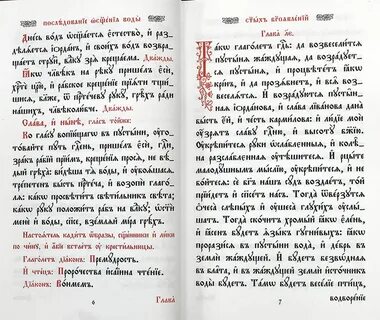 послѣ́дованїе ѡ҆сщ҃е́нїѧ воды̀
Дне́сь во́дъ ѡ҆сщ҃а́етсѧ є҆стество̀, и҆ раз-
дѣлѧ́етсѧ і҆ѻрда́нъ, и҆ свои́хъ во́дъ возвра-
ща́етъ стрꙋи̑, влⷣкꙋ зрѧ̀ креща́ема. Два́жды.
Ꙗ҆́кѡ чл҃вѣ́къ на рѣ́кꙋ прише́лъ є҆сѝ,
хрⷭ҇тѐ цр҃ю̀, и҆ ра́бское крⷳ҇ще́нїе прїѧ́ти тщи́-
шисѧ, бл҃же, ѿ прⷣте́чевꙋ рꙋкꙋ̀, грѣ̑хъ ра́ди
на́шихъ, чл҃вѣколю́бче. Два́жды.
Сла́ва, и҆ ны́нѣ, гла́съ то́йже:
Ко гла́сꙋ вопїю́щагѡ въ пꙋсты́ни, ᲂу҆гото́-
вайте пꙋ́ть гдⷭ҇ень, прише́лъ є҆сѝ, гдⷭ҇и,
зра́къ ра́бїй прїи́мъ, креще́нїѧ просѧ̀, не вѣ́-
дый грѣха̀: ви́дѣша тѧ̀ во́ды, и҆ ᲂу҆боѧ́шасѧ,
тре́петенъ бы́сть прⷣте́ча, и҆ возопѝ глаго́-
лѧ: ка́кѡ просвѣти́тъ свѣти́льникъ свѣ́та;
ка́кѡ рꙋ́кꙋ положи́тъ ра́бъ на влⷣкꙋ; ѡ҆сѧтѝ
менѐ и҆ во́ды, сп҃се, взе́млѧй мі́ра грѣхѝ.
Глаго́летъ дїа́конъ: Премꙋ́дрость.
И҆ чте́цъ: Проро́чества и҆са́їина чте́нїе.
Дїа́конъ: Во́нмемъ.
6
Глава̀
ст҃ы́хъ бг҃оѧвле́нїй
Глава̀ л҃е.
Та́кѡ глаго́летъ гдⷭ҇ь: да возвесели́тсѧ
пꙋсты́нѧ жа́ждꙋщаѧ, да возра́дꙋет-
сѧ пꙋсты́нѧ, и҆ процвѣте́тъ ꙗ҆́кѡ
кри́нъ. И҆ процвѣте́тъ и҆ возра́дꙋетсѧ пꙋсты́-
ннаѧ і҆ѻрда́нова, и҆ сла́ва лїва́нова дана̀
бы́сть є҆́й, и҆ че́сть карми́лова: и҆ лю́дїе моѝ
ᲂу҆́зрѧтъ сла́вꙋ гдⷭ҇ню, и҆ высотꙋ̀ бж҃їю.
Оу҆крѣпи́тесѧ рꙋ́ки ѡ҆сла́блєнныѧ, и҆ колѣ́-
на разсла́блєннаѧ ᲂу҆тѣ́шитесѧ. И҆ рцы́те
малодꙋ́шнымъ мы́слїю, ᲂу҆крѣпи́тесѧ, и҆ не
бо́йтесѧ: сѐ бг҃ъ на́шъ сꙋ́дъ воздае́тъ, то́й
прїи́детъ и҆ сп҃се́тъ на́съ. Тогда̀ ѿве́рзꙋтсѧ
ѻ҆́чи слѣпы́хъ, и҆ ᲂу҆́ши глꙋхи́хъ ᲂу҆слы́-
шатъ. Тогда̀ ско́читъ хромы́й ꙗ҆́кѡ є҆ле́нь,
и҆ ꙗ҆́сенъ бꙋ́детъ ꙗ҆зы́къ гꙋгни́выхъ: ꙗ҆́кѡ
прорази́сѧ въ пꙋсты́ни вода̀, и҆ де́брь въ
землѝ жа́ждꙋщей. И҆ бꙋ́детъ безво́днаѧ во
є҆зе́ра, и҆ на жа́ждꙋщей землѝ и҆сто́чникъ
воды̀ бꙋ́детъ. Та́мѡ бꙋ́детъ весе́лїе пти́цъ,
7
водворе́нїе